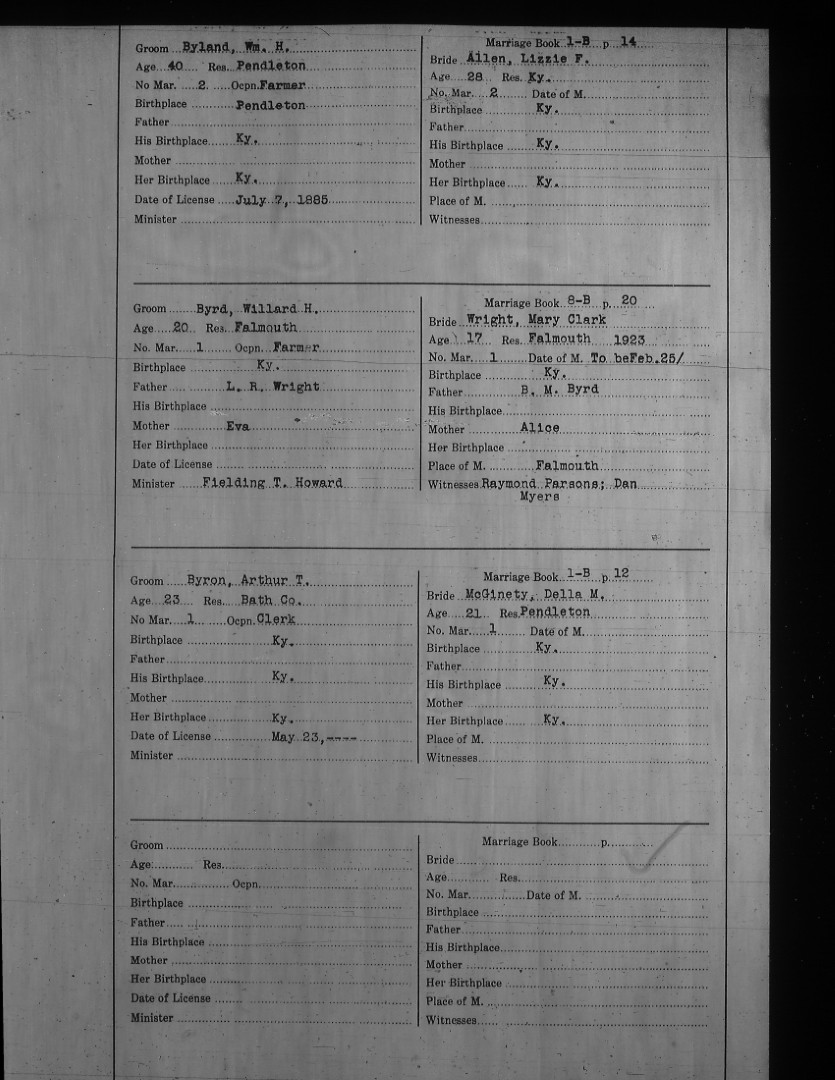 Groom Byland, Wm. H.
Age 40 Res. Pendleton
No Mar. 2. Ocpn. Farmer
Birthplace Pendleton
Father
His Birthplace Ky.
Mother
Her Birthplace Ky.
Date of License July 7, 1885
Minister
Marriage Book 1-B p 14
Bride Allen, Lizzie F.
Age 28 Res. Ky.
No. Mar. 2 Date of M.
Birthplace Ky.
Father
His Birthplace Ky.
Mother
Her Birthplace Ky.
Place of M.
Witnesses
Groom Byrd, Willard H.
Age 20 Res. Falmouth
No. Mar. 1 Ocpn. Farmer
Birthplace Ky.
Father L. R. Wright
His Birthplace
Mother Eva
Her Birthplace
Date of License
Minister Fielding T. Howard
Marriage Book 8-B p. 20
Bride Wright, Mary Clark
Age 17 Res. Falmouth 1923
No. Mar. 1 Date of M. To beFeb.25/
Birthplace Ky.
Father B. M. Byrd
His Birthplace
Mother Alice
Her Birthplace
Place of M. Falmouth
Witnesses Raymond Parsons; Dan
Myers
Groom Byron, Arthur T.
Age 23 Res. Bath Co.
No Mar. 1 Ocpn. Clerk
Birthplace Ky.
Father
His Birthplace Ky.
Mother
Her Birthplace Ky.
Date of License May 23,----
Minister
Marriage Book 1-B p. 12
Bride McGinety, Della M.
Age 21 Res. Pendleton
No. Mar. 1 Date of M.
Birthplace Ky.
Father
His Birthplace Ky.
Mother
Her Birthplace Ky.
Place of M.
Witnesses
Groom
Age Res.
No. Mar. Ocpn.
Birthplace
Father
His Birthplace
Mother
Her Birthplace
Date of License
Minister
Marriage Book p.
Bride
Age Res.
No. Mar. Date of M.
Birthplace
Father
His Birthplace
Mother
Her Birthplace
Place of M.
Witnesses